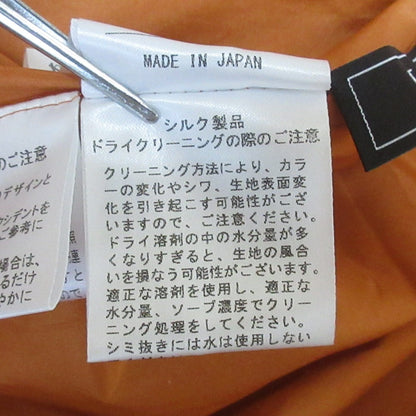 MADE IN JAPAN
シルク製品
ドライクリーニングの際のご注意
クリーニング方法により、カラ
ーの変化やシワ、生地表面変
化を引き起こす可能性がござ
いますので、ご注意ください。
ドライ溶剤の中の水分量が多
くなりすぎると、生地の風合
いを損なう可能性がございます。
適正な溶剤を使用し、適正な
水分量、ソープ濃度でクリー
ニング処理をしてください。
シミ抜きには水は使用しない
のご注意
デザインと
シデントを
ご参考に
場合は、
るだけ
やかに